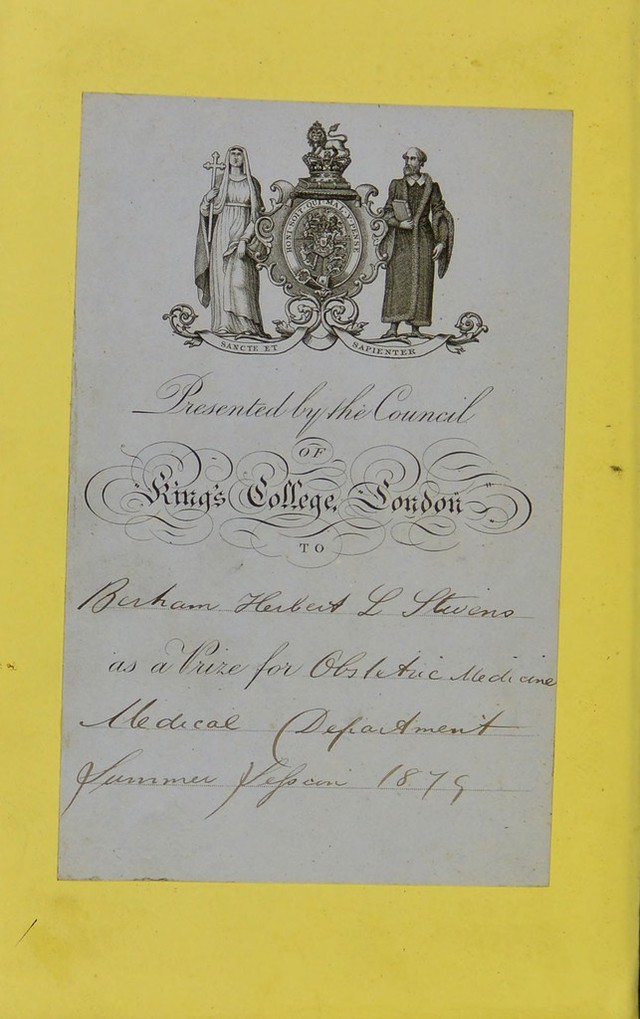 HONI·SOIT·QUI·MAL·Y·PENSE
SANCTE ET SAPIENTER
Presented by the Council
OF
King's College, London
TO
Herbert L Stevens
as a Prize for Obstetric Medicine
Medical Department
Summer Session 1879